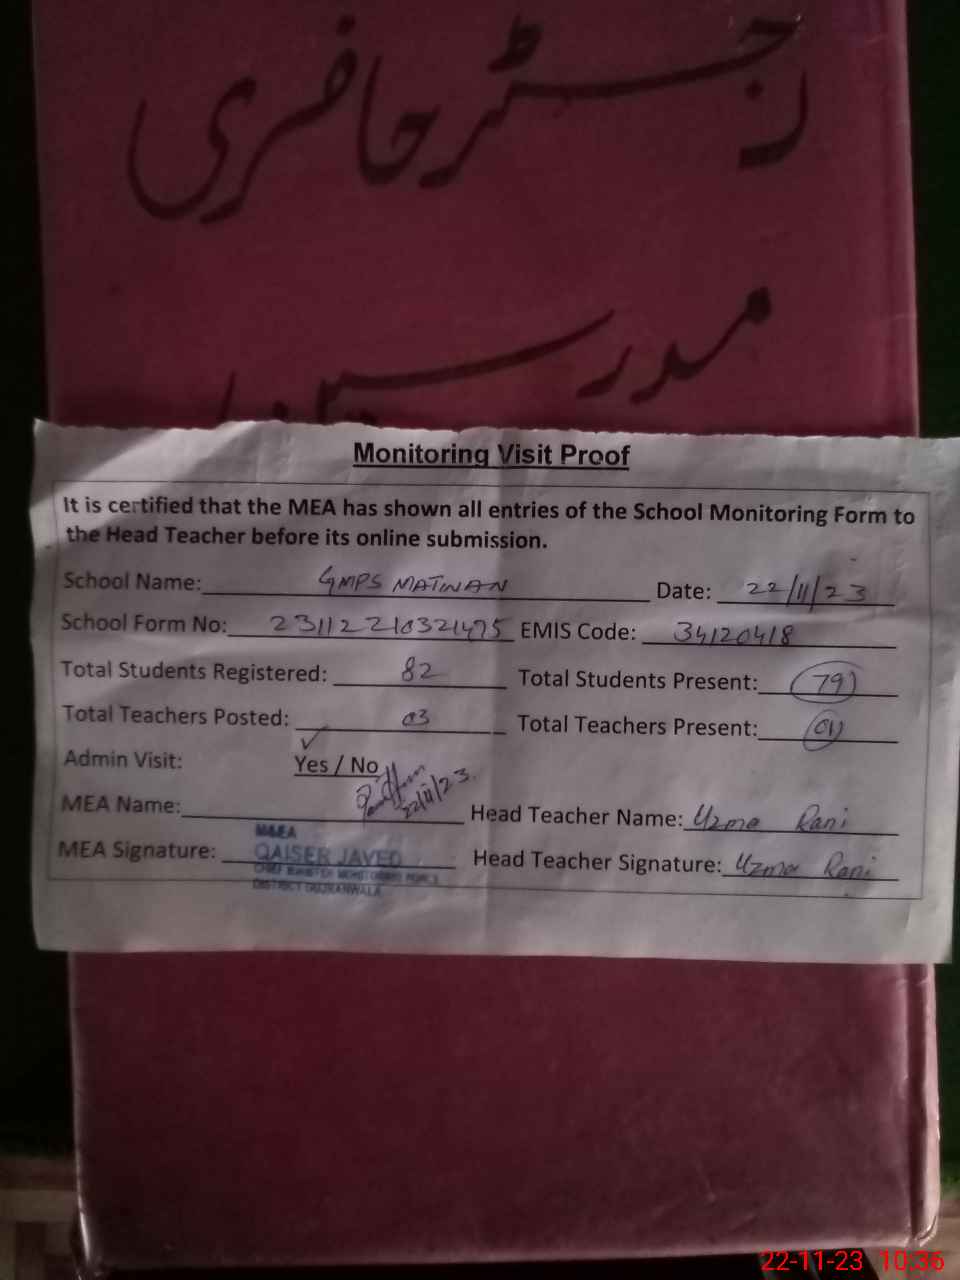 رجسٹر حاضری
مدرسین
Monitoring Visit Proof
It is certified that the MEA has shown all entries of the School Monitoring Form to
the Head Teacher before its online submission.
School Name: GMPS MATINAN Date: 22/11/23
School Form No: 23112210321475 EMIS Code: 34120418
Total Students Registered: 82 Total Students Present: 79
Total Teachers Posted: 03 Total Teachers Present: 01
Admin Visit: ✓ Yes / No
22/11/23.
MEA Name: Head Teacher Name: Uzma Rani
M&EA
MEA Signature: QAISER JAVED Head Teacher Signature: Uzma Rani
CHIEF MINISTER MONITORING FORCE
DISTRICT GUJRANWALA
22-11-23 10:36